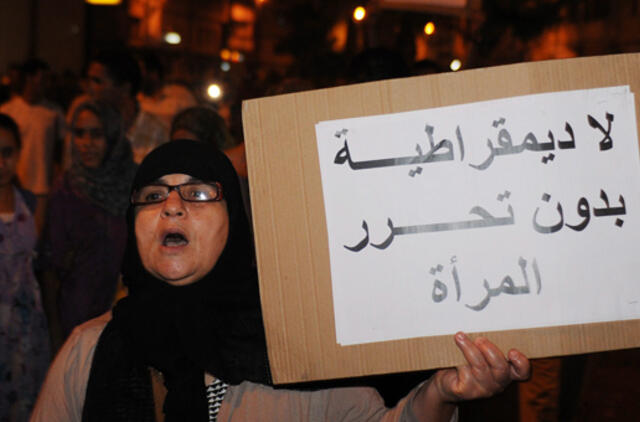 لا ديمقراطية
بدون تحرر
المرأة